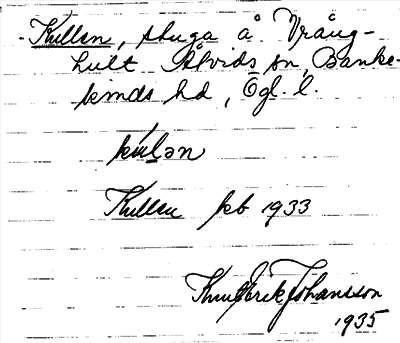 Kullen, stuga å Vräng-
hult Åtvids sn, Banke-
kinds hd, Ögl. l.
kulən
Kullen kb 1933
Knut Erik Johansson
1935